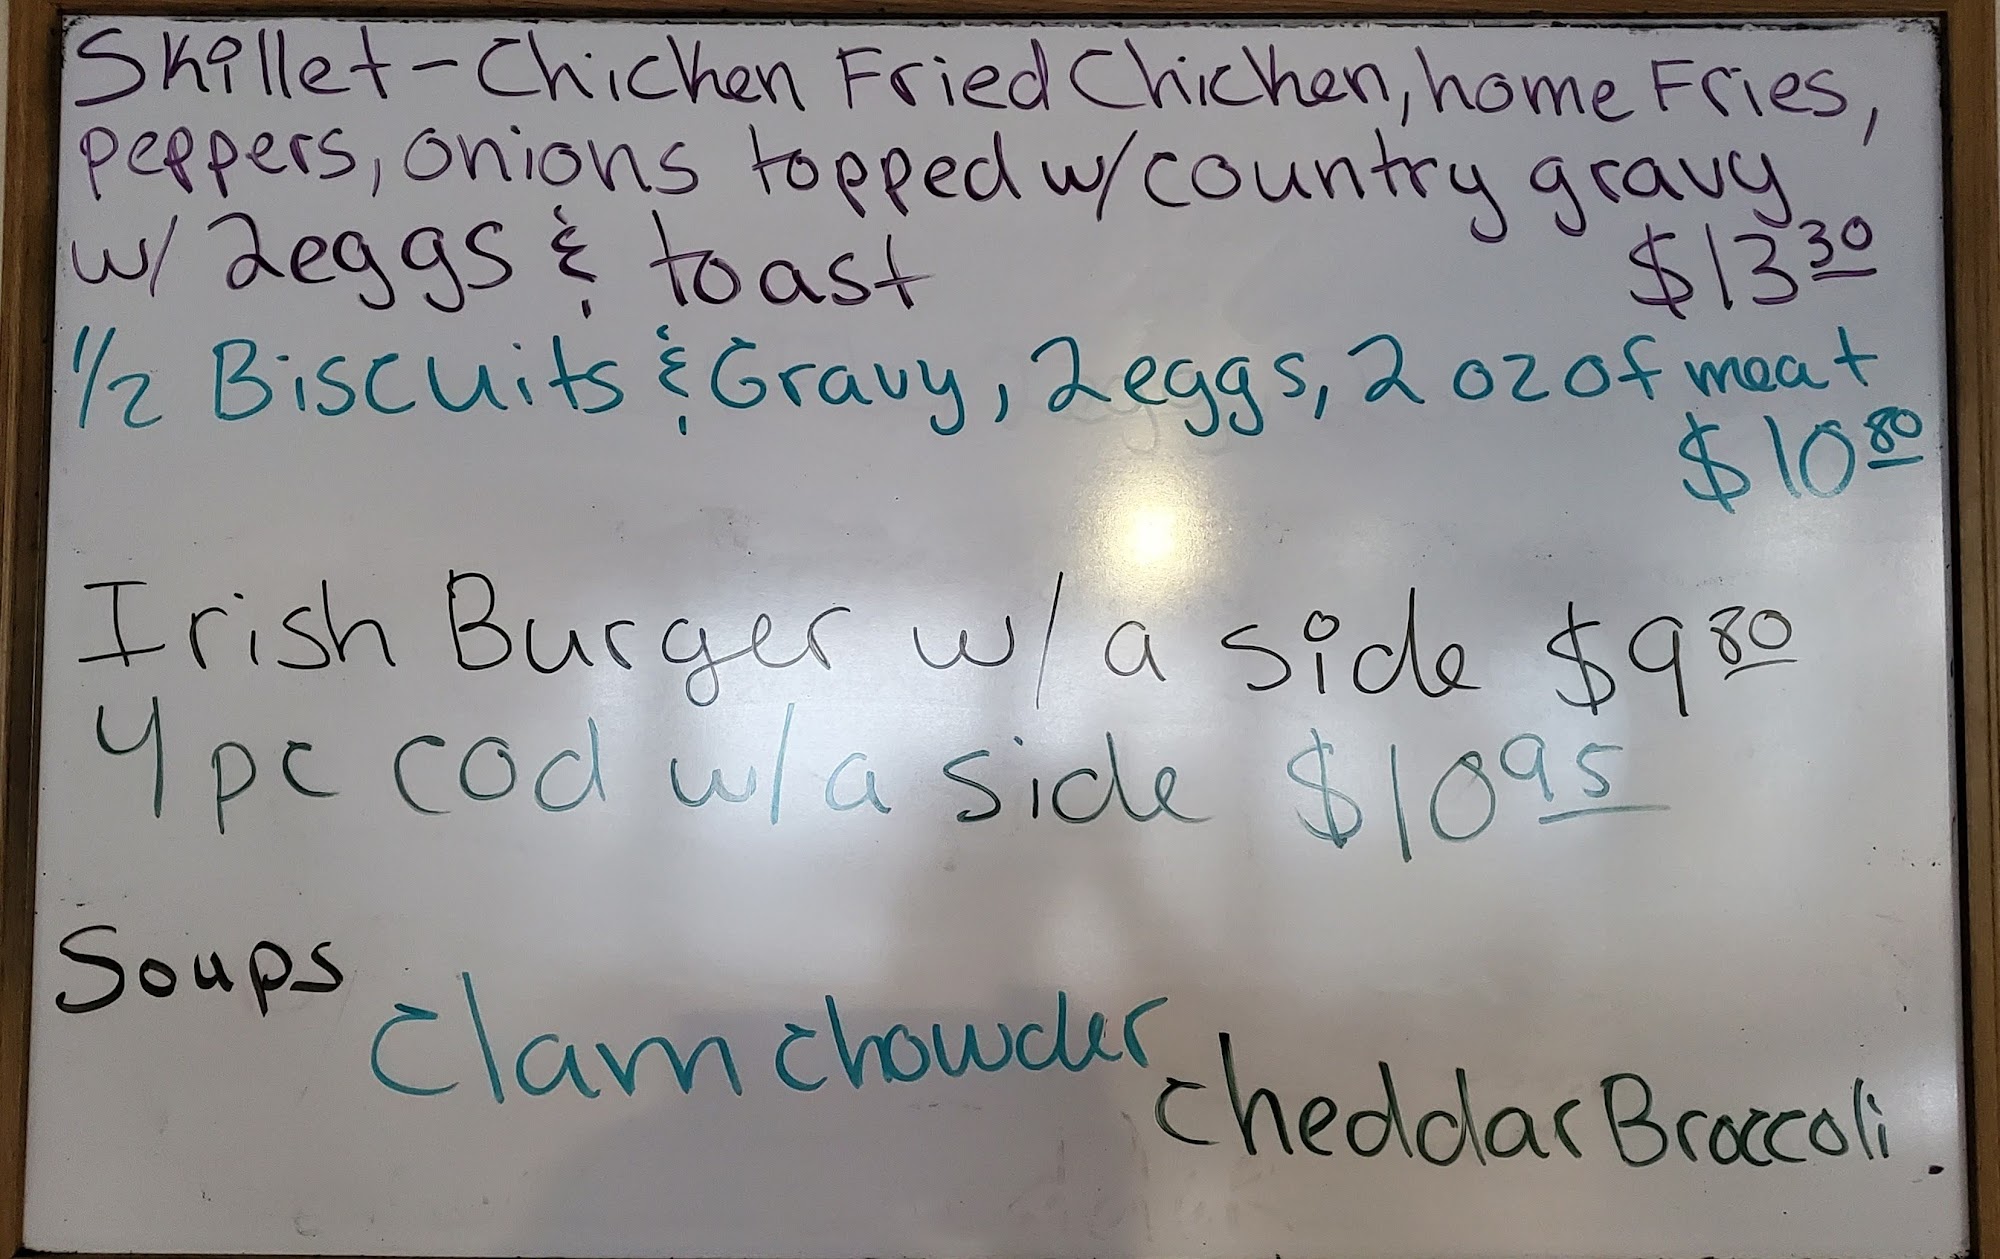 Skillet - Chicken Fried Chicken, home Fries,
peppers, onions topped w/ country gravy
w/ 2 eggs & toast $13 30
1/2 Biscuits & Gravy, 2 eggs, 2 oz of meat
$10 80
Irish Burger w/ a side $9 80
4 pc cod w/ a side $10 95
Soups
Clam chowder
cheddar Broccoli